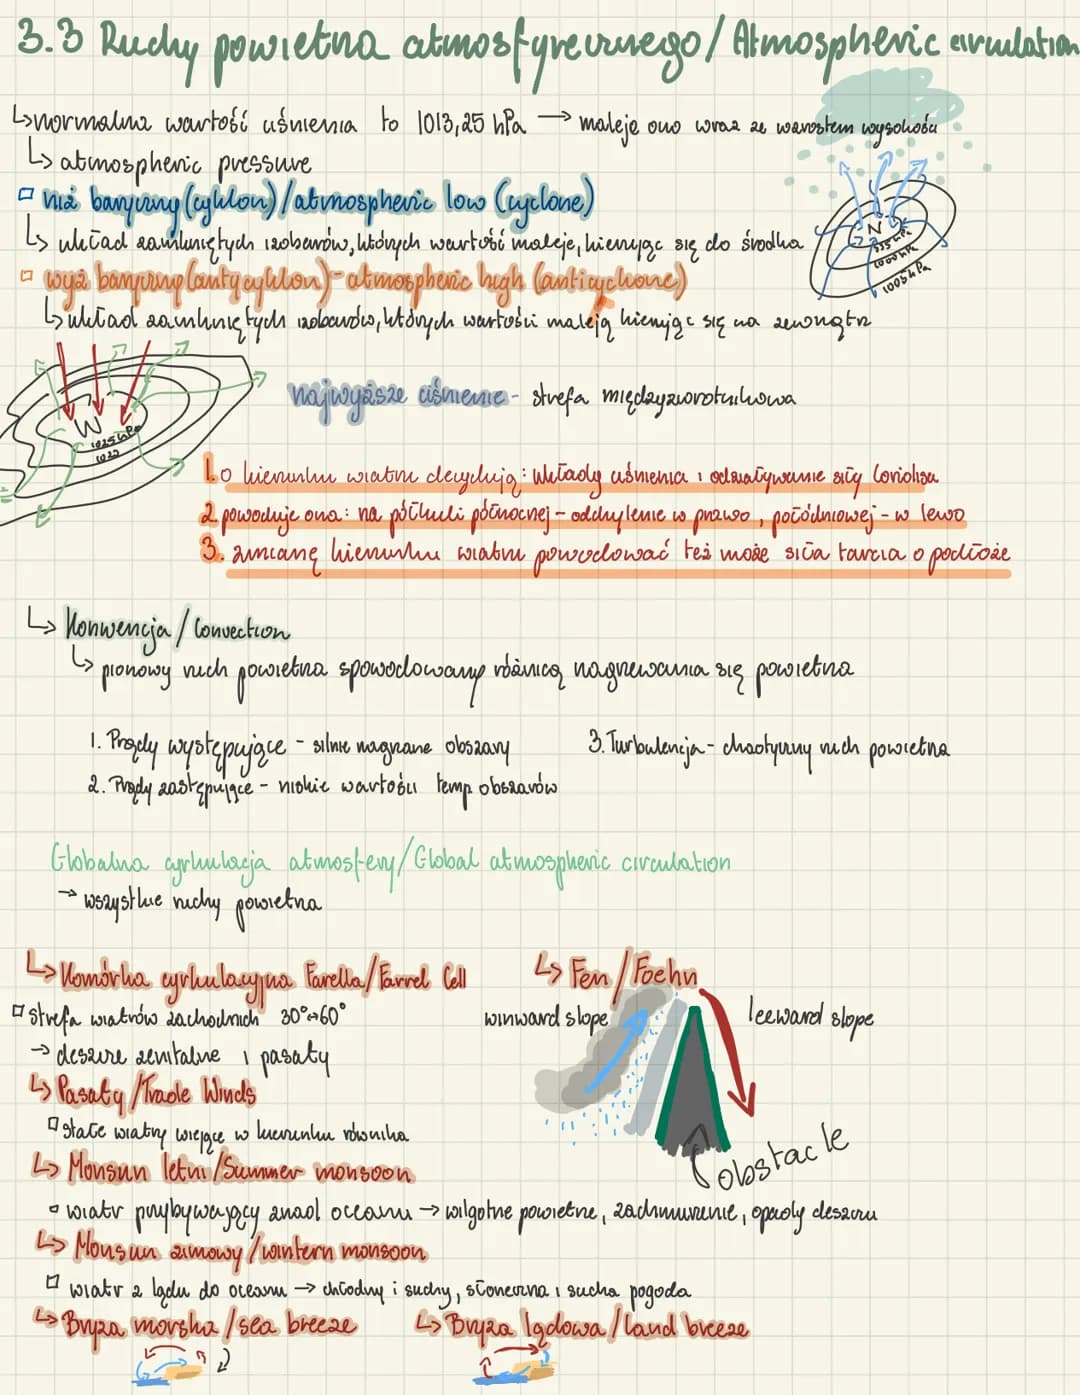 3.3 Ruchy powietrza atmosferycznego/Atmospheric circulation
↳normalna wartość ciśnienia to 1013,25 hPa → maleje ono wraz ze wzrostem wysokości
↳ atmospheric pressure
niż baryczny (cyklon)/atmospheric low (cyclone)
↳ układ zamkniętych izobarów, których wartość maleje, kierując się do środka
N
995 hPa
1000 hPa
1005 hPa
wyż baryczny (antycyklon)-atmospheric high (anticyclone)
↳ układ zamkniętych izobarów, których wartości maleją kierując się na zewnątrz
W
1025 hPa
1020
najwyższe ciśnienie - strefa międzyzwrotnikowa
1. o kierunku wiatru decydują: układy ciśnienia i odziaływanie siły Coriolisa
2. powoduje ona: na półkuli północnej - odchylenie w prawo, południowej - w lewo
3. zmianę kierunku wiatru powodować też może siła tarcia o podłoże
↳ Konwencja / Convection
↳ pionowy ruch powietrza spowodowany różnicą nagrzewania się powietrza
1. Prądy występujące - silnie nagrzane obszary
3. Turbulencja - chaotyczny ruch powietrza
2. Prądy zastępujące - niskie wartości temp obszarów
Globalna cyrkulacja atmosfery/Global atmospheric circulation
→ wszystkie ruchy powietrza
↳ Komórka cyrkulacyjna Farella/Farrel Cell
↳ Fen / Foehn
strefa wiatrów zachodnich 30°↔60°
winward slope
leeward slope
→ deszcze zenitalne i pasaty
↳ Pasaty /Trade Winds
stałe wiatry wiejące w kierunku równika
obstacle
↳ Monsun letni/Summer monsoon
wiatr przybywający znad oceanu → wilgotne powietrze, zachmurzenie, opady deszczu
↳ Monsun zimowy /wintern monsoon
wiatr z lądu do oceanu → chłodny i suchy, słoneczna i sucha pogoda
↳ Bryza morska /sea breeze
↳ Bryza lądowa /land breeze